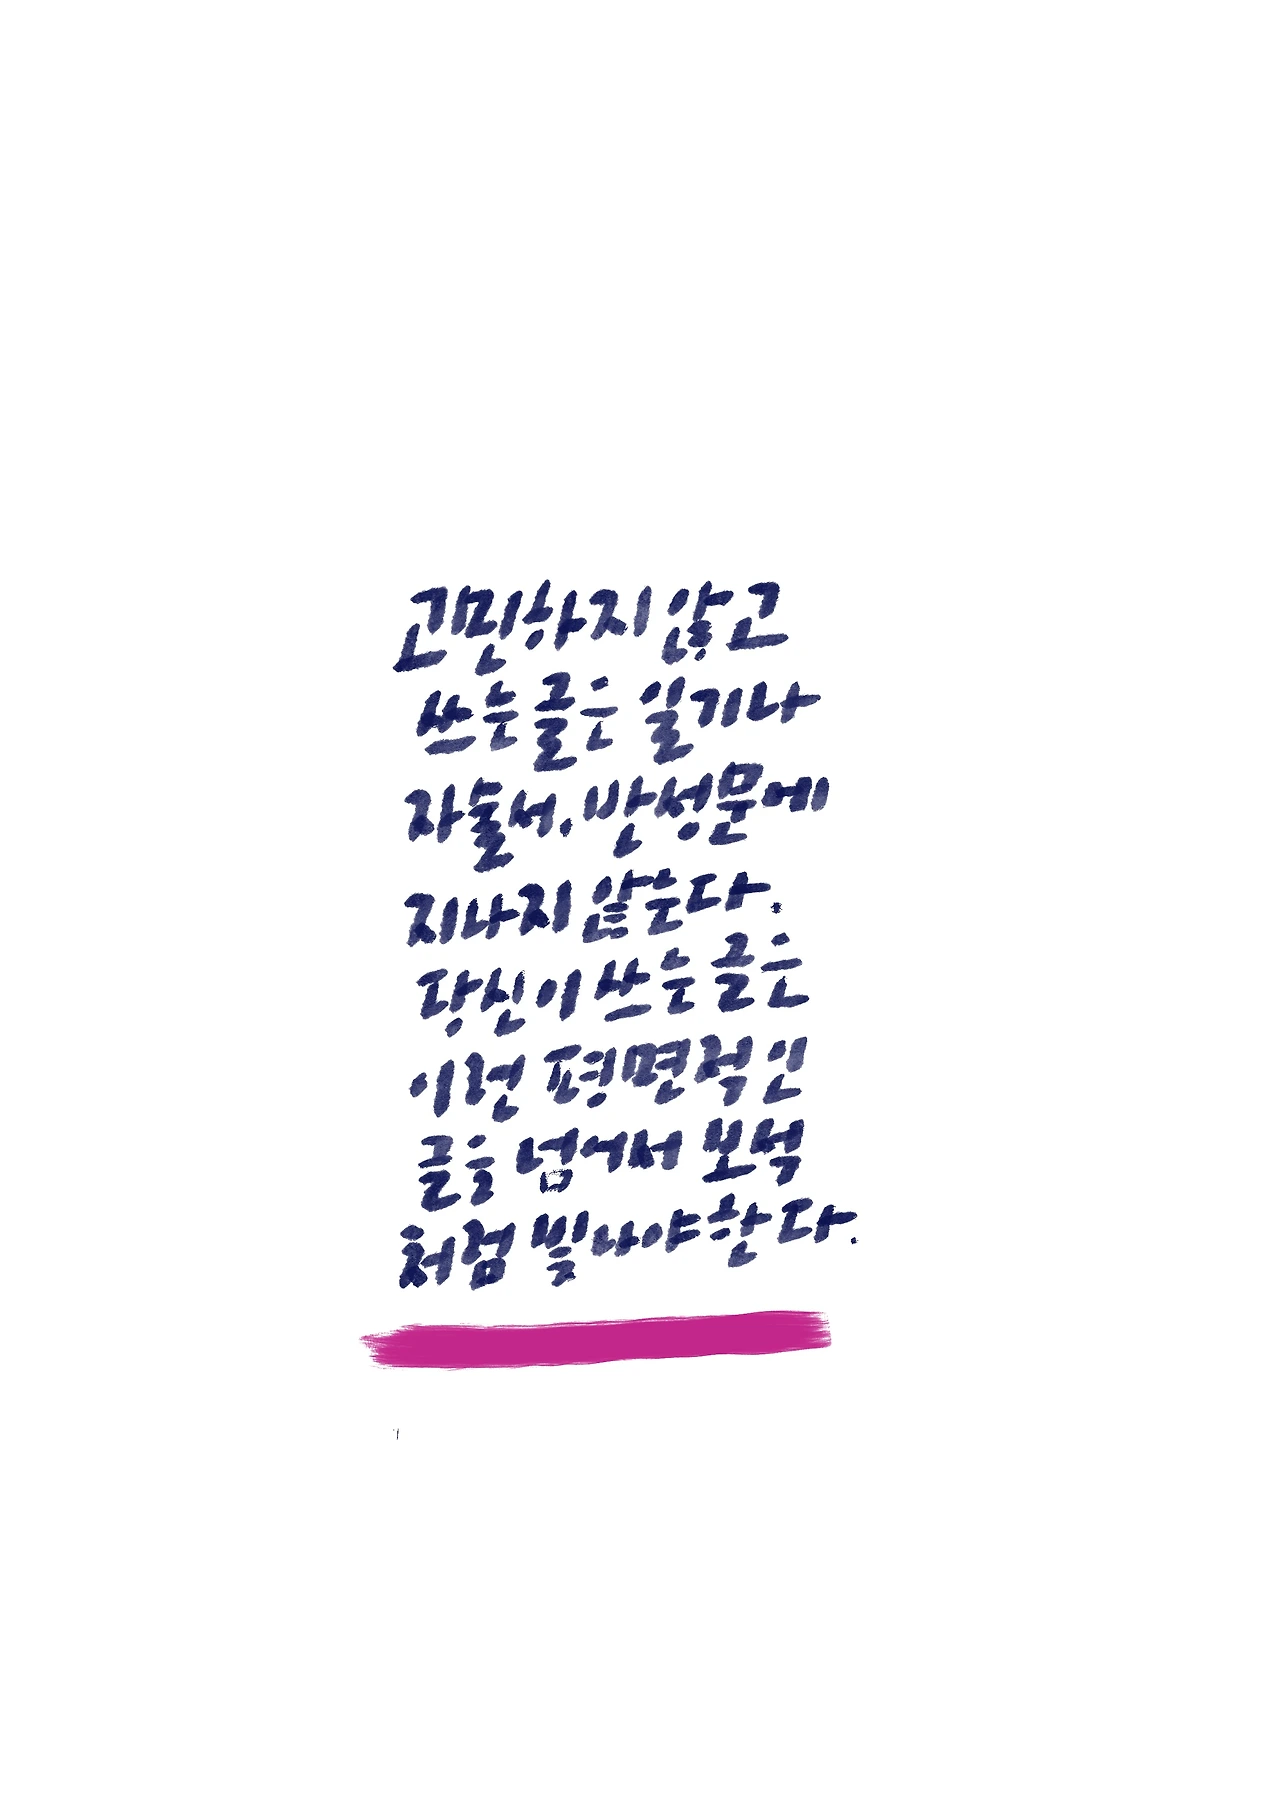 고민하지 않고
쓰는 글은 일기나
자술서, 반성문에
지나지 않는다.
당신이 쓰는 글은
이런 평면적인
글을 넘어서 보석
처럼 빛나야 한다.